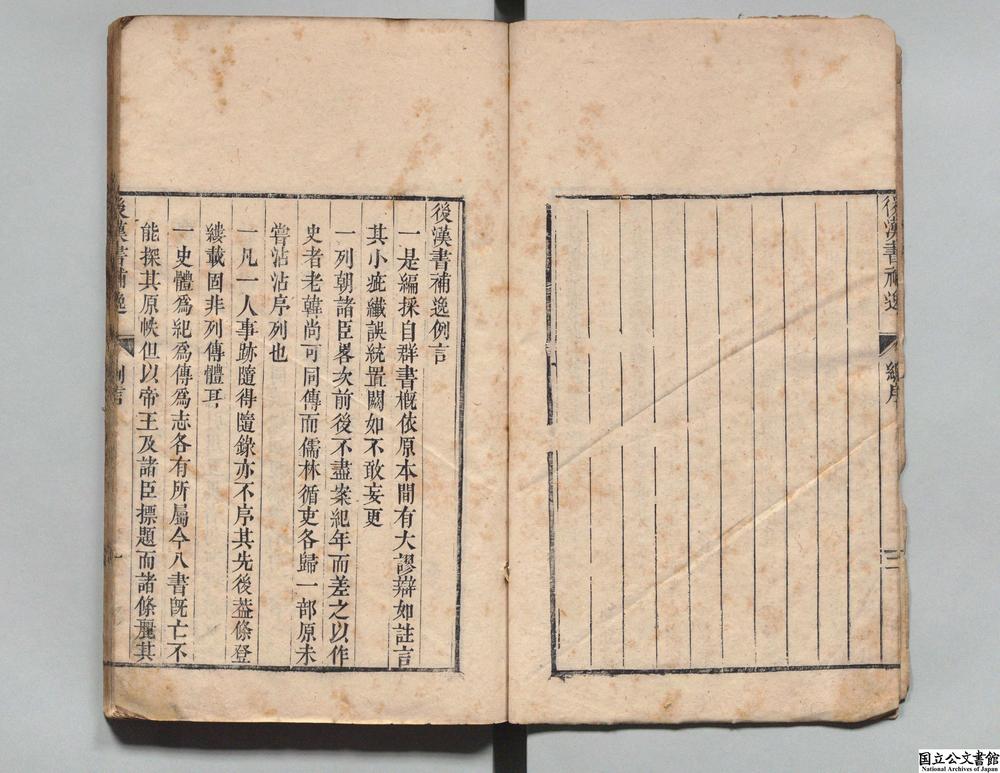 後漢書補逸
總序
三
後漢書補逸例言
一是編採自群書槪依原本間有大謬辯如註言
其小疵纖誤統置闕如不敢妄更
一列朝諸臣畧次前後不盡案紀年而差之以作
史者老韓尚可同傳而儒林循吏各歸一部原未
嘗沾沾序列也
一凡一人事跡隨得隨錄亦不序其先後葢條登
縷載固非列傳體耳
一史體爲紀爲傳爲志各有所屬今八書旣亡不
能探其原帙但以帝王及諸臣摽題而諸條麗其
後漢書補逸
例言
一
国立公文書館
National Archives of Japan